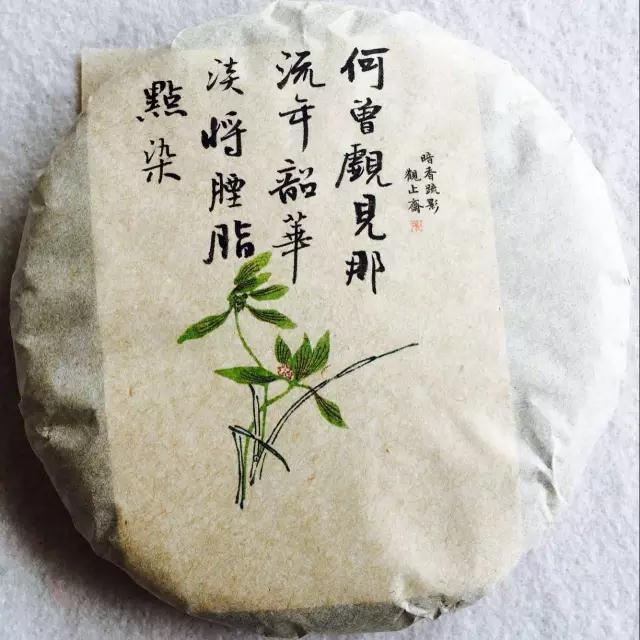 何曾覷見那
流年韶華
淡將胭脂
點染
暗香疏影
觀止齋